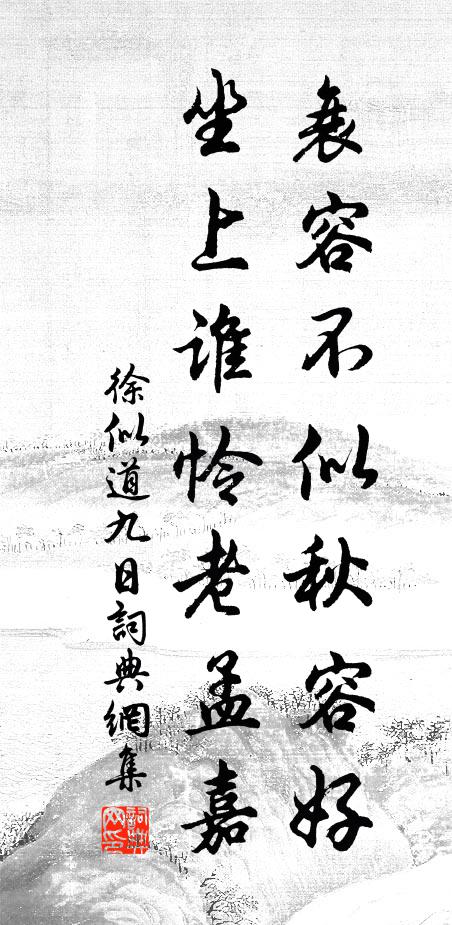 衰容不似秋容好
坐上谁怜老孟嘉
徐似道九日詞典網集